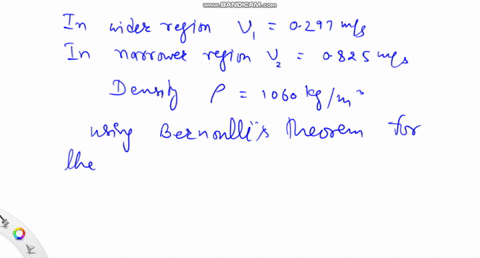 WWW.BANDICAM.COM
In wider region V₁ = 0.297 m/s
In narrower region V₂ = 0.825 m/s
Density ρ = 1060 kg/m³
using Bernoulli's Theorem for
the